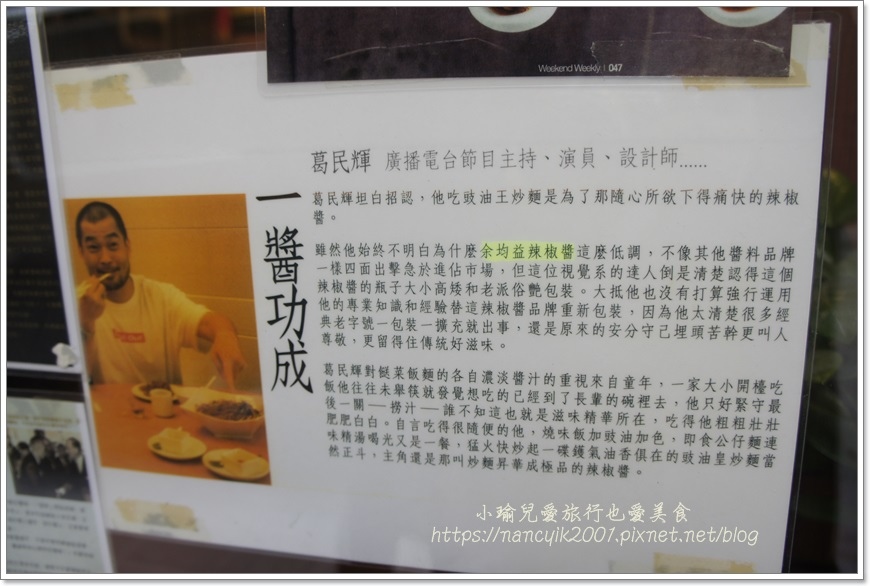 Weekend Weekly | 047
葛民輝 廣播電台節目主持、演員、設計師......
一醬功成
葛民輝坦白招認，他吃豉油王炒麵是為了那隨心所欲下得痛快的辣椒
醬。
雖然他始終不明白為什麼余均益辣椒醬這麼低調，不像其他醬料品牌
一樣四面出擊急於進佔市場，但這位視覺系的達人倒是清楚認得這個
辣椒醬的瓶子大小高矮和老派俗艷包裝。大抵他也沒有打算強行運用
他的專業知識和經驗替這辣椒醬品牌重新包裝，因為他太清楚很多經
典老字號一包裝一擴充就出事，還是原來的安分守己埋頭苦幹更叫人
尊敬，更留得住傳統好滋味。
葛民輝對餸菜飯麵的各自濃淡醬汁的重視來自童年，一家大小開檯吃
飯他往往未舉筷就發覺想吃的已經到了長輩的碗裡去，他只好緊守最
後一關——撈汁——誰不知這也就是滋味精華所在，吃得他粗粗壯壯
肥肥白白。自言吃得很隨便的他，燒味飯加豉油加色，即食公仔麵連
味精湯喝光又是一餐，猛火快炒起一碟鑊氣油香俱在的豉油皇炒麵當
然正斗，主角還是那叫炒麵昇華成極品的辣椒醬。
小瑜兒愛旅行也愛美食
https://nancyik2001.pixnet.net/blog